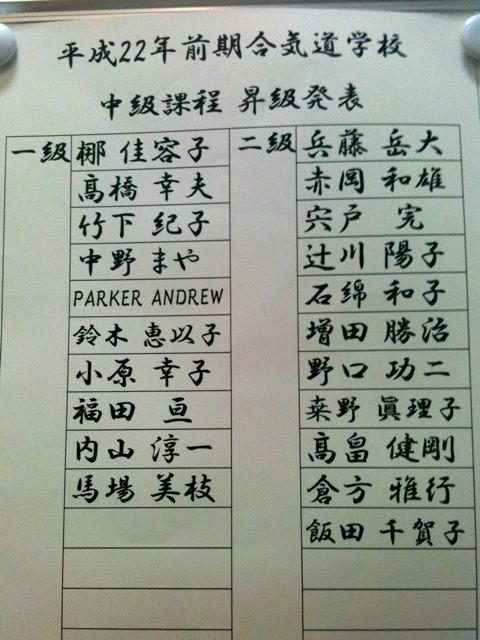 平成22年前期合気道学校
中級課程 昇級発表
一級
梛 佳容子
髙橋 幸夫
竹下 紀子
中野 まや
PARKER ANDREW
鈴木 恵以子
小原 幸子
福田 亘
内山 淳一
馬場 美枝
二級
兵藤 岳大
赤岡 和雄
宍戸 完
辻川 陽子
石綿 和子
増田 勝治
野口 功二
桒野 眞理子
高畠 健剛
倉方 雅行
飯田 千賀子